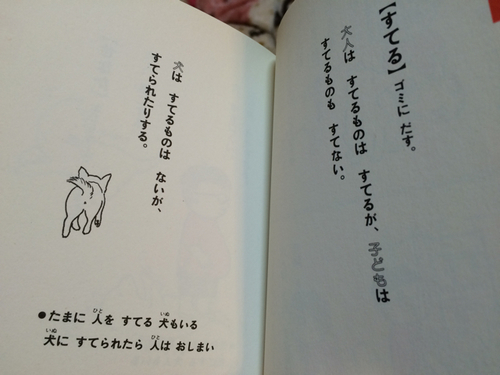 【すてる】ゴミに だす。
大人は すてるものは すてるが、子どもは
すてるものも すてない。
犬は すてるものは ないが、
すてられたりする。
●たまに 人を すてる 犬もいる
犬に すてられたら 人は おしまい